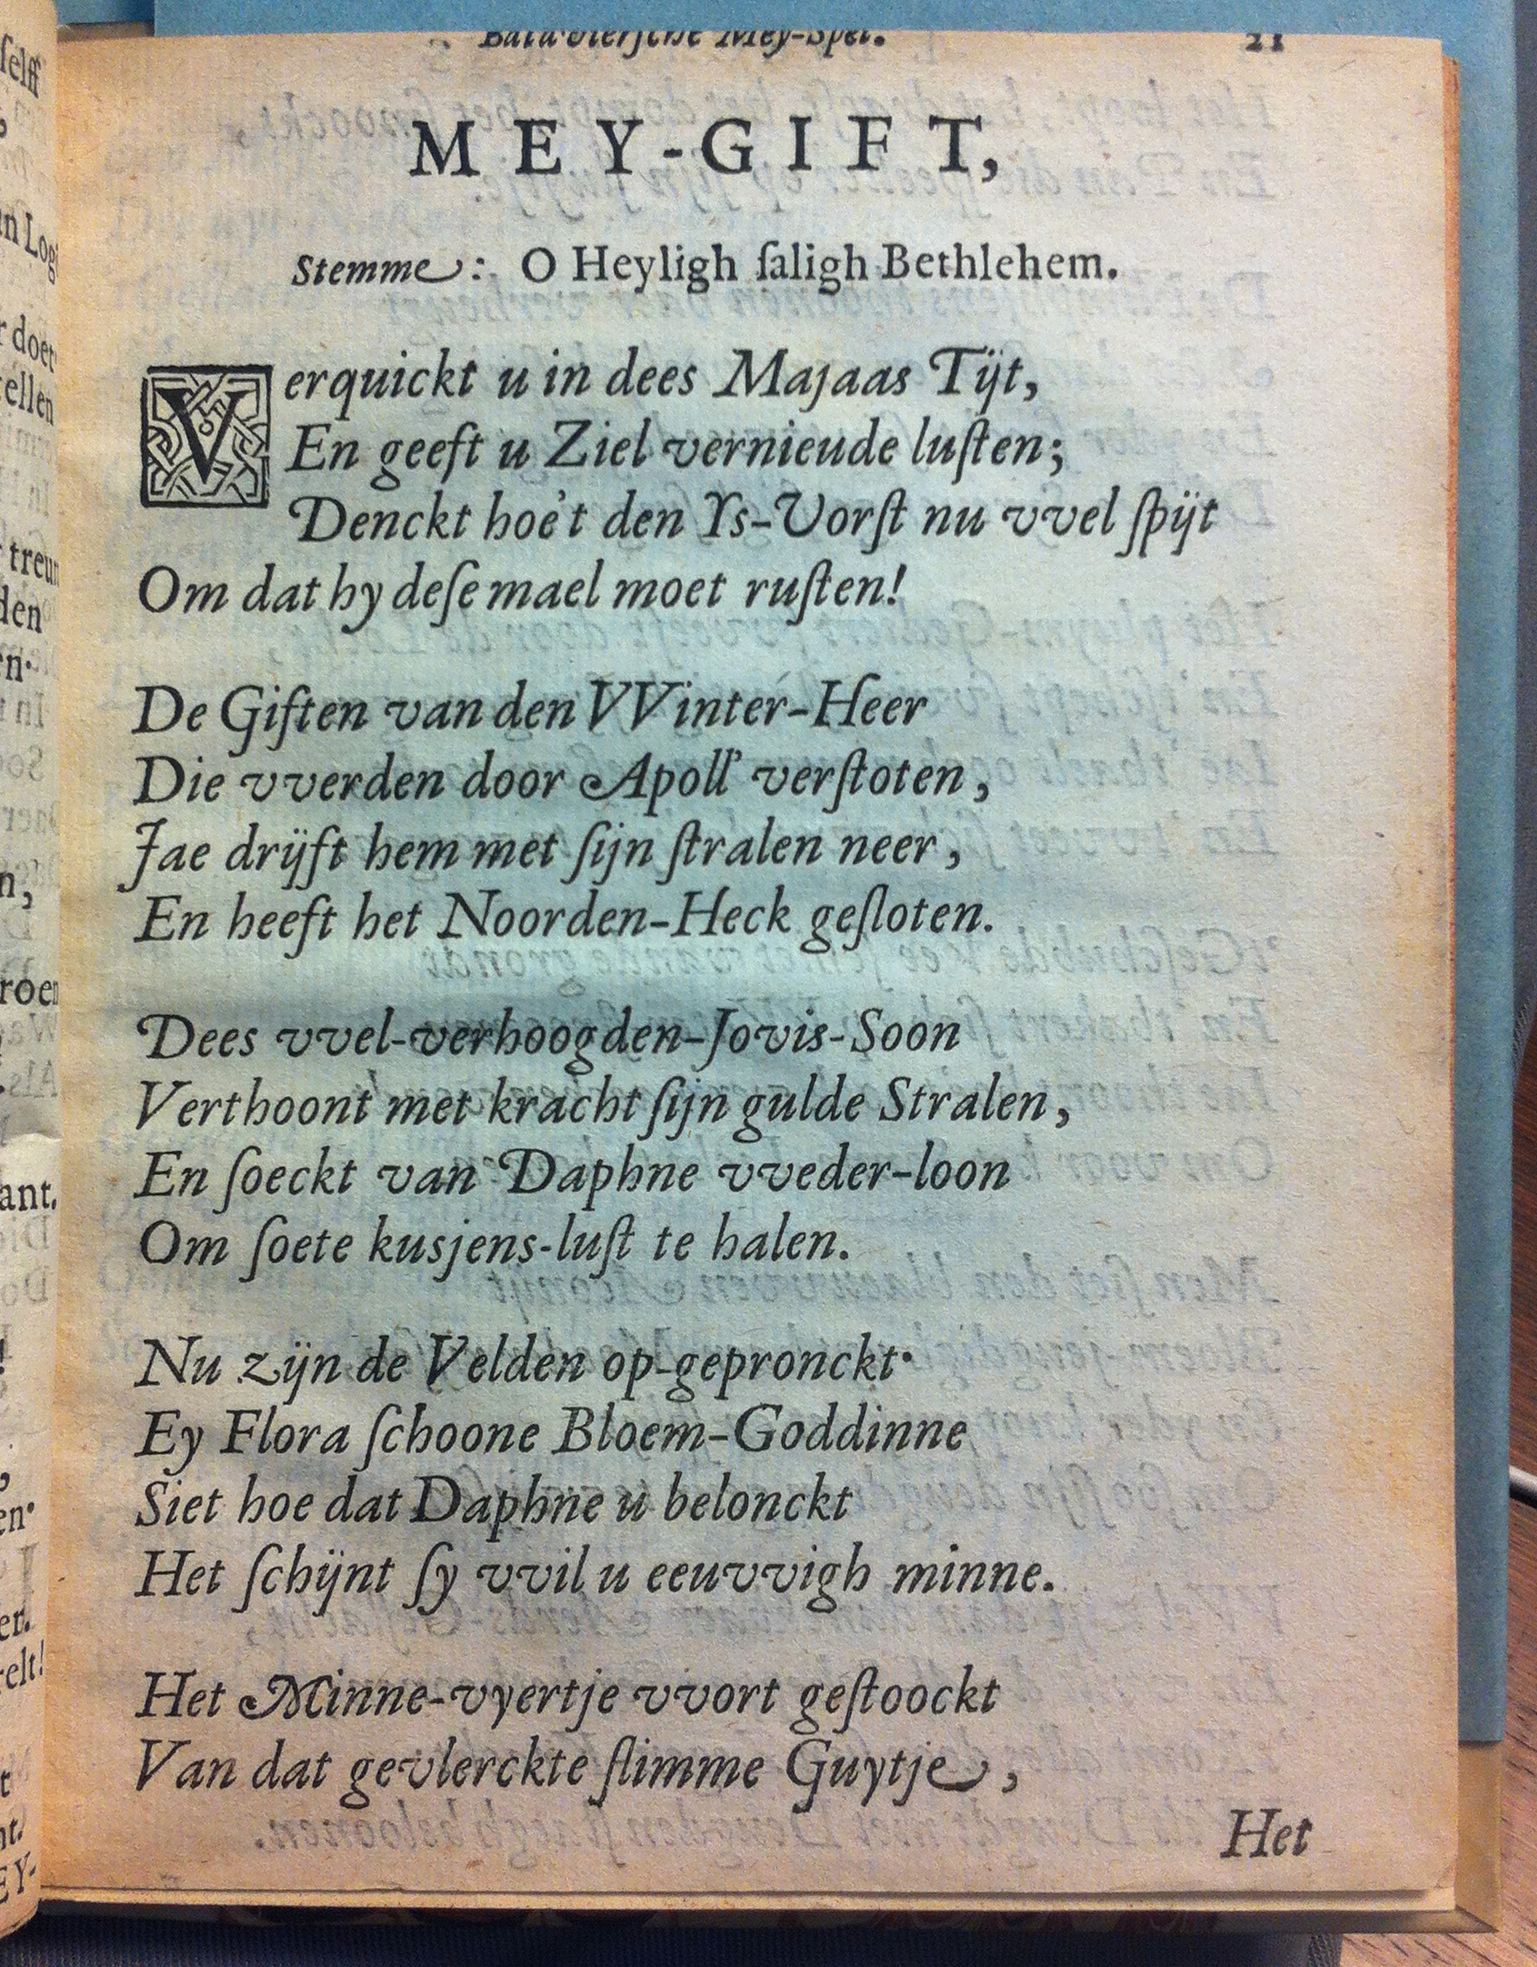 Batavierſche Mey-Spel. 21
MEY-GIFT,
Stemme: O Heyligh ſaligh Bethlehem.
Verquickt u in dees Majaas Tijt,
En geeft u Ziel vernieude luſten;
Denckt hoe't den Ys-Vorſt nu vvel ſpijt
Om dat hy deſe mael moet ruſten!
De Giften van den VVinter-Heer
Die vverden door Apoll' verſtoten,
Jae drijft hem met ſijn ſtralen neer,
En heeft het Noorden-Heck geſloten.
Dees vvel-verhoogden-Jovis-Soon
Verthoont met kracht ſijn gulde Stralen,
En ſoeckt van Daphne vveder-loon
Om ſoete kusjens-luſt te halen.
Nu zijn de Velden op-gepronckt.
Ey Flora ſchoone Bloem-Goddinne
Siet hoe dat Daphne u belonckt
Het ſchijnt ſy vvil u eeuvvigh minne.
Het Minne-vyertje vvort geſtoockt
Van dat gevlerckte ſlimme Guytje,
Het